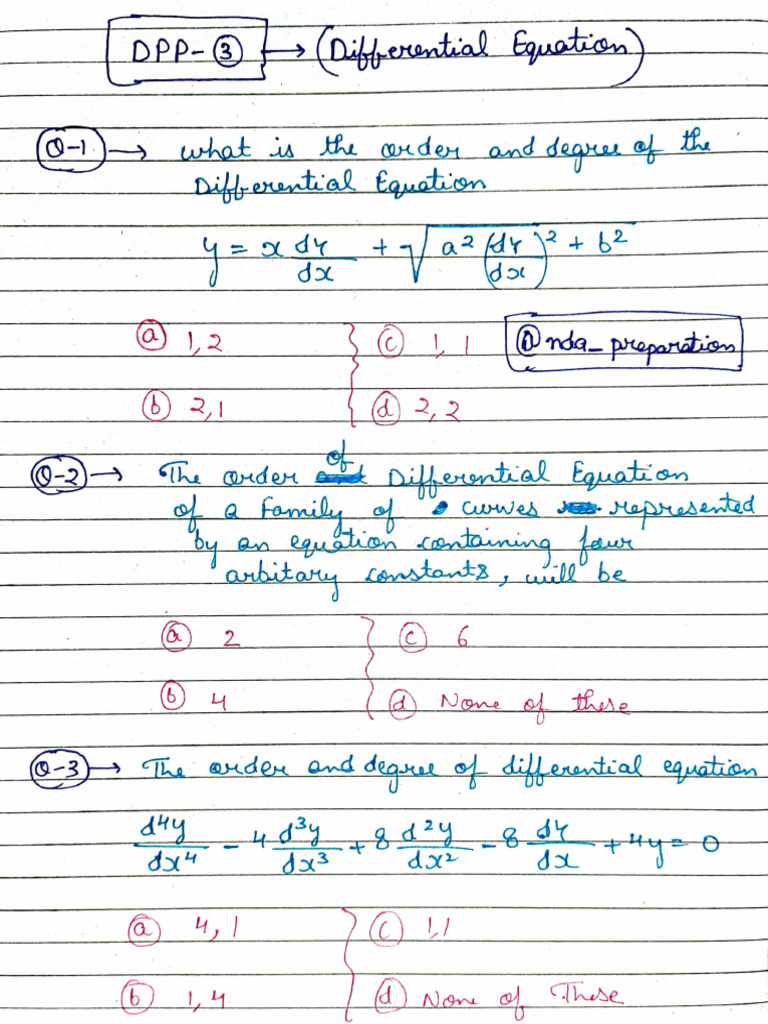 DPP-③ → (Differential Equation)
Q-1 → what is the order and degree of the
Differential Equation
y = x dy/dx + √(a² (dy/dx)² + b²)
ⓐ 1,2 ⓒ 1,1 @nda_preparation
ⓑ 2,1 ⓓ 2,2
Q-2 → The order of Differential Equation
of a family of curves represented
by an equation containing four
arbitary constants, will be
ⓐ 2 ⓒ 6
ⓑ 4 ⓓ None of these
Q-3 → The order and degree of differential equation
d⁴y/dx⁴ - 4 d³y/dx³ + 8 d²y/dx² - 8 dy/dx + 4y = 0
ⓐ 4,1 ⓒ 1,1
ⓑ 1,4 ⓓ None of These